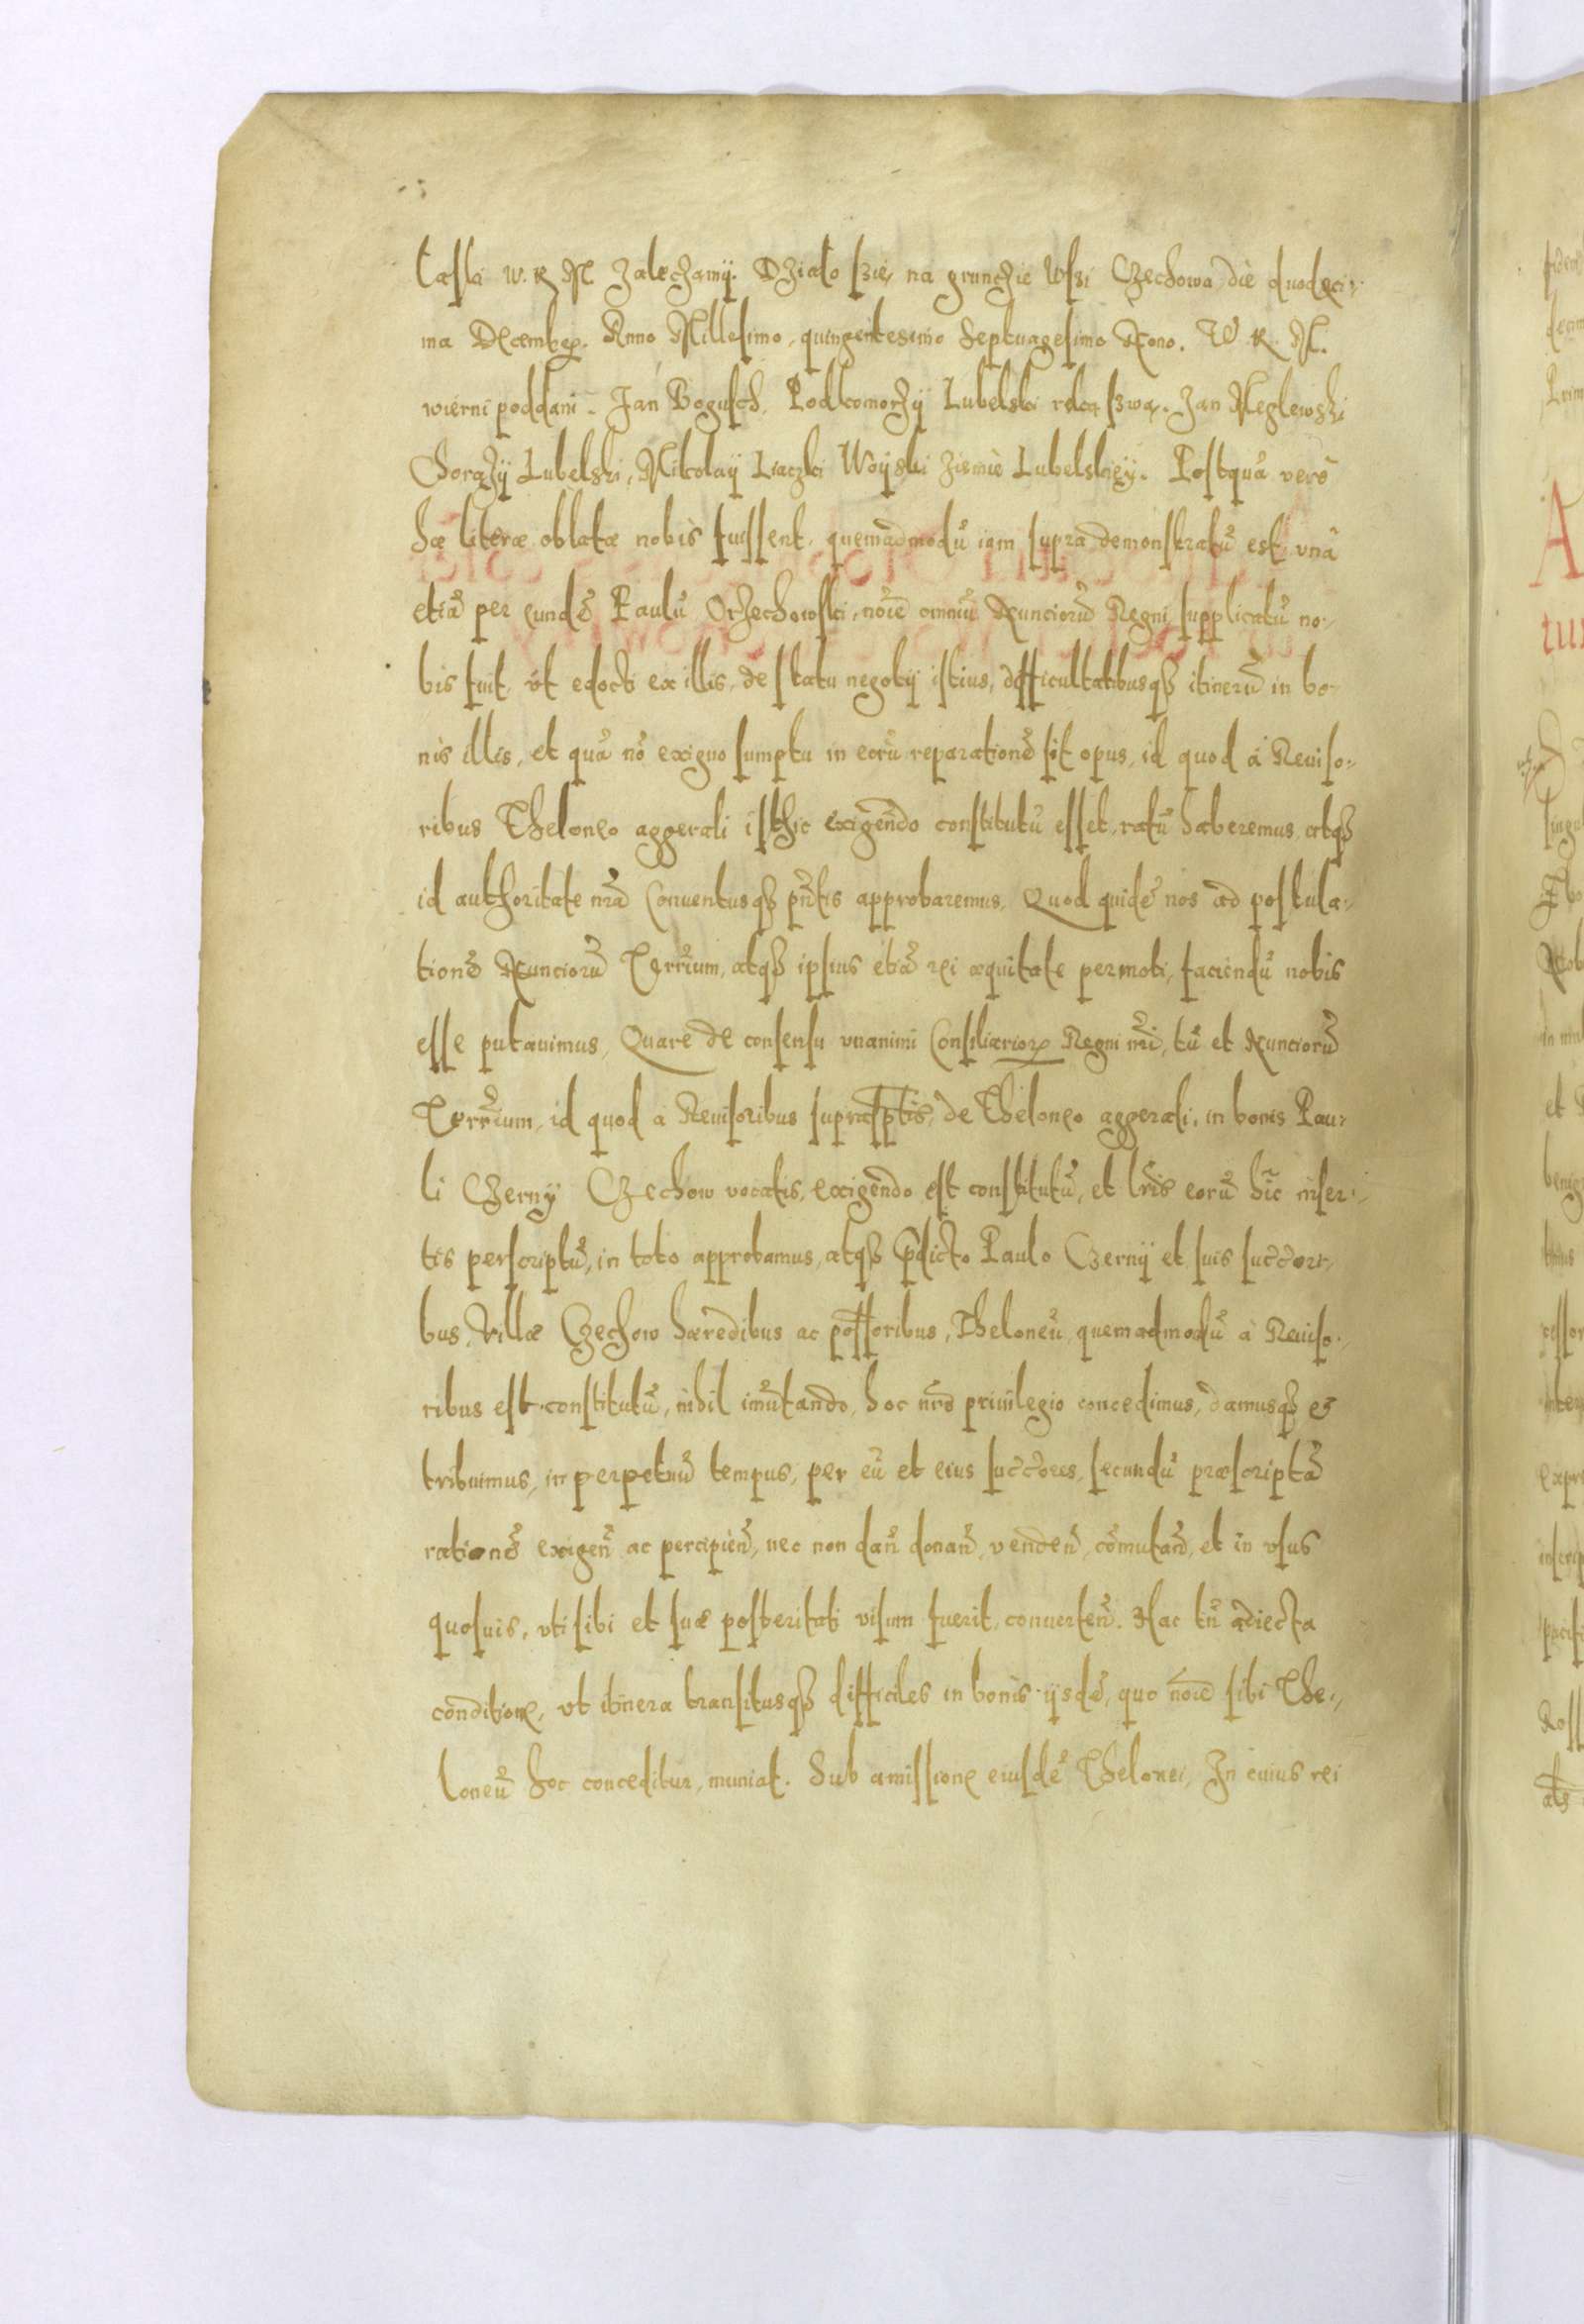 Łaski W. K. M. zalecżamÿ. Dżiało szię na grunczie Wsżi Czechowa die duodeci-
ma Decembr. Anno Millesimo, quingentesimo Septuagesimo Nono. W. K. M.
wierni poddani. Jan Bogusch, Podkomorżÿ Lubelski ręką szwą. Jan Meglewski
Chorążÿ Lubelski, Mikolaÿ Liaczki Woÿski Ziemie Lubelskieÿ. Postquã verò
hæ literæ oblatæ nobis fuissent, quemadmodũ iam supra demonstratũ est, vnà
etiã per eundẽ Paulũ Orżechowski, noĩe omniũ Nunciorũ Regni supplicatũ no-
bis fuit, vt edocti ex illis, de statu negotÿ istius, difficultatibusq́ itinerũ in bo-
nis illis, et quã nõ exiguo sumptu in eorũ reparationẽ sit opus, id quod à Reuiso-
ribus Theloneo aggerali isthic exigendo constitutũ esset, ratũ haberemus, atq́
id authoritate nr̃a Conuentusq́ pñtis approbaremus. Quod quidẽ nos ad postula-
tionẽ Nunciorũ Terr̃ium, atq́ ipsius etiã rei æquitate permoti, faciendũ nobis
esse putauimus, Quare de consensu vnanimi Consiliarior Regni nr̃i, tũ et Nunciorũ
Terr̃ium, id quod à Reuisoribus suprasptis, de Theloneo aggerali, in bonis Pau-
li Czernÿ Czechow vocatis, exigendo est constitutũ, et lr̃is eorũ hĩc inser-
tis perscriptũ, in toto approbamus, atq́ p̃dicto Paulo Czernÿ et suis succ̃ori-
bus, Villæ Czechow hæredibus ac poss̃oribus, Theloneũ quemadmodũ à Reuiso-
ribus est constitutũ, nihil im̃utando, hoc nr̃o priuilegio concedimus, damusq́ et
tribuimus, in perpetuũ tempus, per eũ et eius succ̃ores, secundũ præscriptã
rationẽ exigeñ ac percipieñ, nec non dañ donañ, vendeñ, cõmutañ, et in vsus
quosuis, vti sibi et suæ posteritati visum fuerit, conuerteñ. Hac tñ adiecta
conditione, vt itinera transitusq́ difficiles in bonis ÿsdẽ, quo noĩe sibi The-
loneũ hoc conceditur, muniat. Sub amissione eiusdẽ Thelonei, In cuius rei